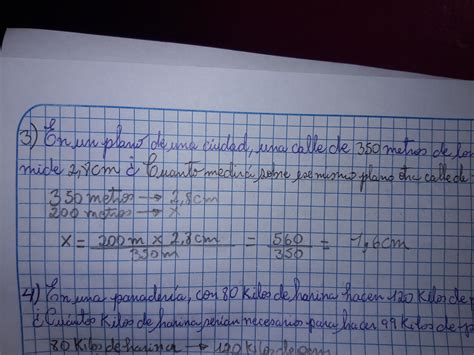 3) En un plano de una ciudad, una calle de 350 metros de lon
mide 2,8cm ¿ Cuanto medira sobre ese mismo plano otra calle de
350 metros → 2,8cm
200 metros → x
x = 200m x 2,8cm / 350m = 560 / 350 = 1,6cm
4) En una panadería, con 80 Kilos de harina hacen 120 Kilos de
¿ Cuántos Kilos de harina serian necesarios para hacer 99 Kilos de
80 Kilos de harina → 120 Kilos de